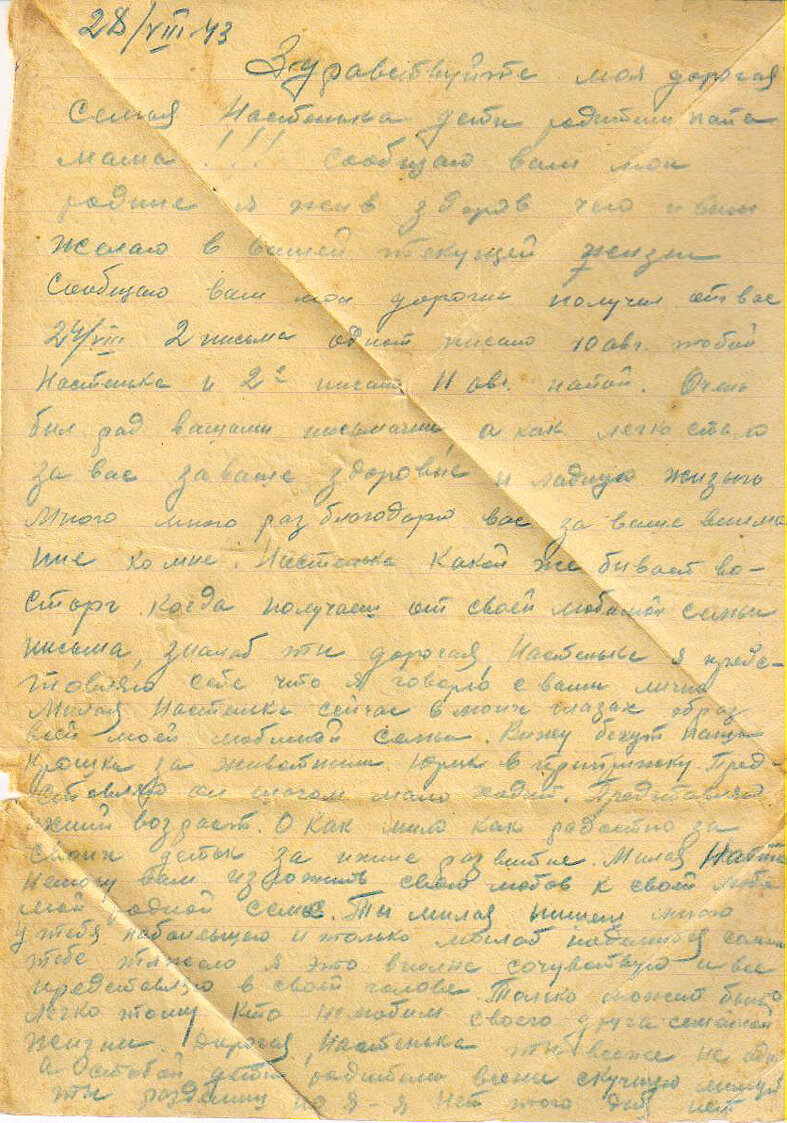 28/VIII-43
Здравствуйте моя дорогая
семья Настенька дети родители папа
мама!!! Сообщаю вам мои
родние я жив здоров чего и вам
желаю в вашей текущей жизни
Сообщаю вам мои дорогие получил от вас
24/VIII 2 письма одно писано 10 авг. тобой
Настенька и 2е писано 11 авг. папой. Очень
был рад вашами письмами, а как легко стало
за вас за ваше здоровье и ладную жизнью
Много много раз благодарю вас за ваше внима
ние ко мне. Настенька какой же бывает во-
сторг когда получаеш от своей любимой семьи
письма, зналаб ти дорогая Настенька я предс-
товляю себе что я говорю с вами лично
Милая Настенька сейчас в моих глазах образ
всей моей любимой семьи. Вижу бегут
крошка за животним Юрик в припрыжку. Пред-
ставляю он шагом мало ходит. Представляю
ихний возраст. О как мило как радостно за
своих деток за ихние развитие. Милая
Немогу вам изложить свою любов к своей люби
мой родной семье. Ти милая пишеш много
у тебя наболевшего и только
тебе тяжело я это вполне сочувствую и все
представляю в своей голове. Только может быть
легко тому кто нелюбит своего друга семейной
жизни. Дорогая Настенька ти всеже не одна
а с тобой дети, родители всеже скучную минуту
ти разделиш но я - я нет этого нет